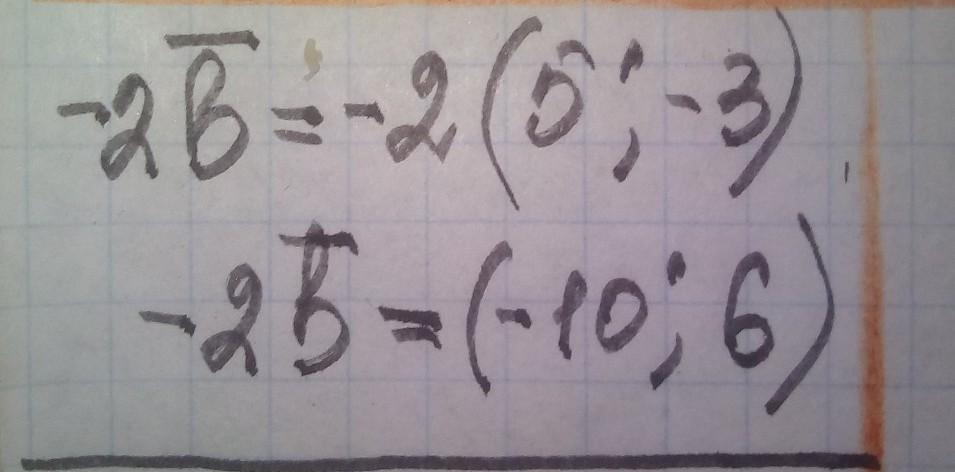 -2b̅ = -2(5; -3)
-2b̅ = (-10; 6)